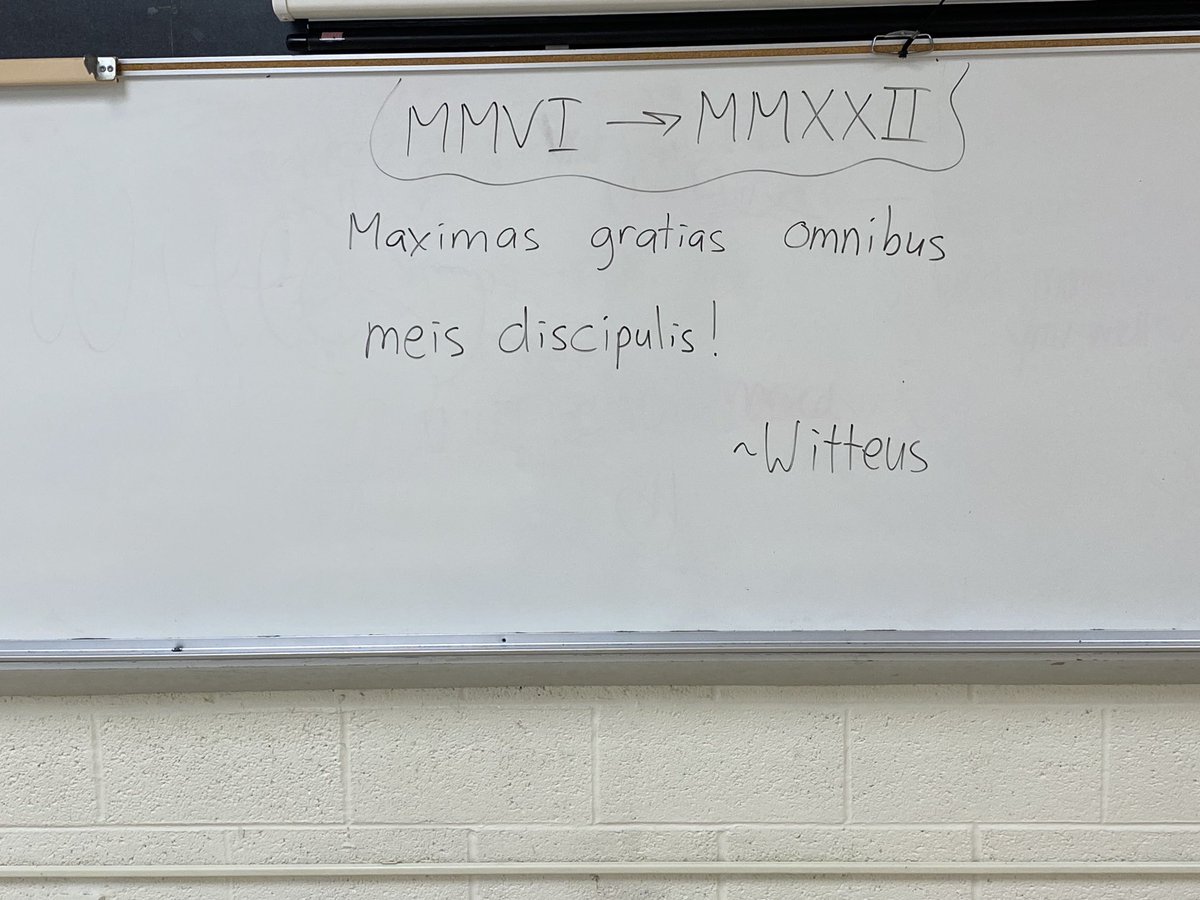 MMVI → MMXXII
Maximas gratias omnibus
meis discipulis!
~Witteus